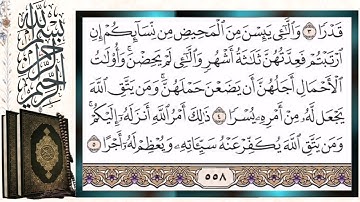 بسم الله الرحمن الرحيم
قَدْرًا ۝٣ وَٱلَّٰٓـِٔي يَئِسْنَ مِنَ ٱلْمَحِيضِ مِن نِّسَآئِكُمْ إِنِ
ٱرْتَبْتُمْ فَعِدَّتُهُنَّ ثَلَٰثَةُ أَشْهُرٍ وَٱلَّٰٓـِٔي لَمْ يَحِضْنَ ۚ وَأُو۟لَٰتُ
ٱلْأَحْمَالِ أَجَلُهُنَّ أَن يَضَعْنَ حَمْلَهُنَّ ۚ وَمَن يَتَّقِ ٱللَّهَ
يَجْعَل لَّهُۥ مِنْ أَمْرِهِۦ يُسْرًا ۝٤ ذَٰلِكَ أَمْرُ ٱللَّهِ أَنزَلَهُۥٓ إِلَيْكُمْ ۚ
وَمَن يَتَّقِ ٱللَّهَ يُكَفِّرْ عَنْهُ سَيِّـَٔاتِهِۦ وَيُعْظِمْ لَهُۥٓ أَجْرًا ۝٥
٥٥٨